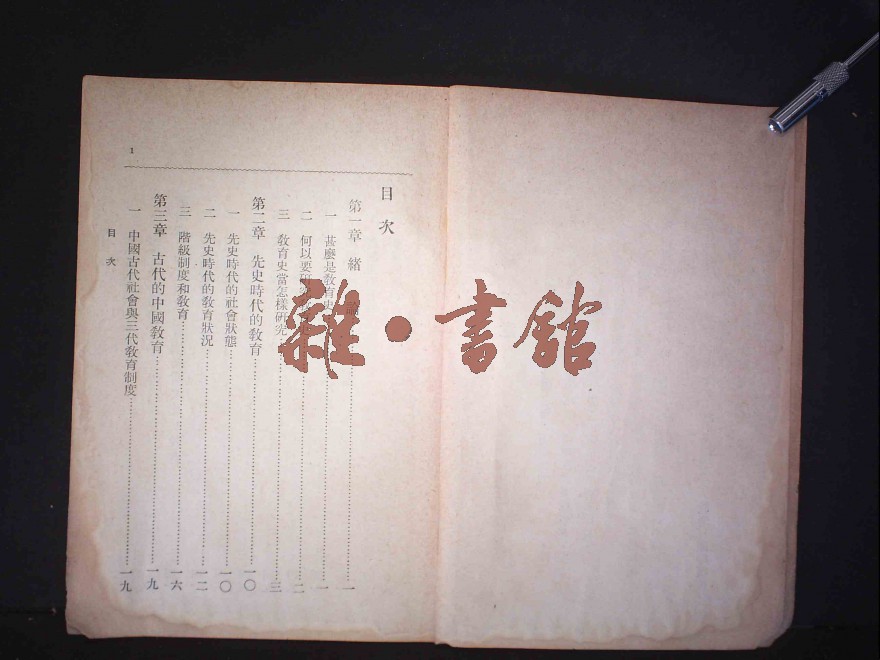 目次
第一章 緒論……一
一 甚麼是教育史……一
二 何以要研究教育史……二
三 教育史當怎樣研究……三
第二章 先史時代的教育……一〇
一 先史時代的社會狀態……一〇
二 先史時代的教育狀況……一二
三 階級制度和教育……一六
第三章 古代的中國教育……一九
一 中國古代社會與三代教育制度……一九
目次
1
雜·書館